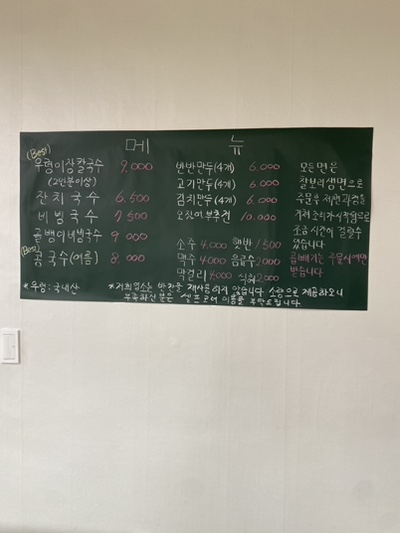 메 뉴
(Best)
우렁이장칼국수 9.000
(2인분이상)
잔치국수 6.500
비빔국수 7.500
골뱅이비빔국수 9.000
(Best)
콩국수(여름) 8.000
*우렁:국내산
반반만두(4개) 6.000
고기만두(4개) 6.000
김치만두(4개) 6.000
오징어.부추전 10.000
소주 4.000 햇반 1.500
맥주 4.000 음료수 2000
막걸리 4000 식혜 2000
모든면은
찰보리생면으로
주문을
조금 시간이 걸릴수
있습니다
곱빼기는 주문시에만
받습니다
*저희업소는 반찬을 재사용하지 않습니다. 소량으로 제공하오니
부족하신분은 셀프코너 이용을 부탁드립니다.